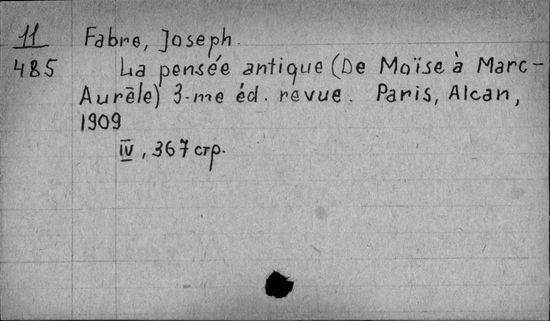 11
485
Fabre, Joseph.
La pensée antique (De Moïse à Marc-
Aurèle) 3-me éd. revue. Paris, Alcan,
1909
IV, 367 стр.